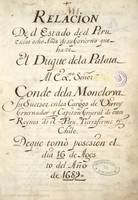 Relacion
De el Estado de el Peru
en los ocho Años de su Govierno que
haze
El Duque de la Palata
Al Exmo Señor
Conde de la Monclova
Su Subcesor en los Cargos de Virrey
Governador y Capitan General de estos
Reynos de el Peru, Tierrafirme y
Chile.
De que tomó posesion el
dia 16 de Agos
to del Año
de 1689